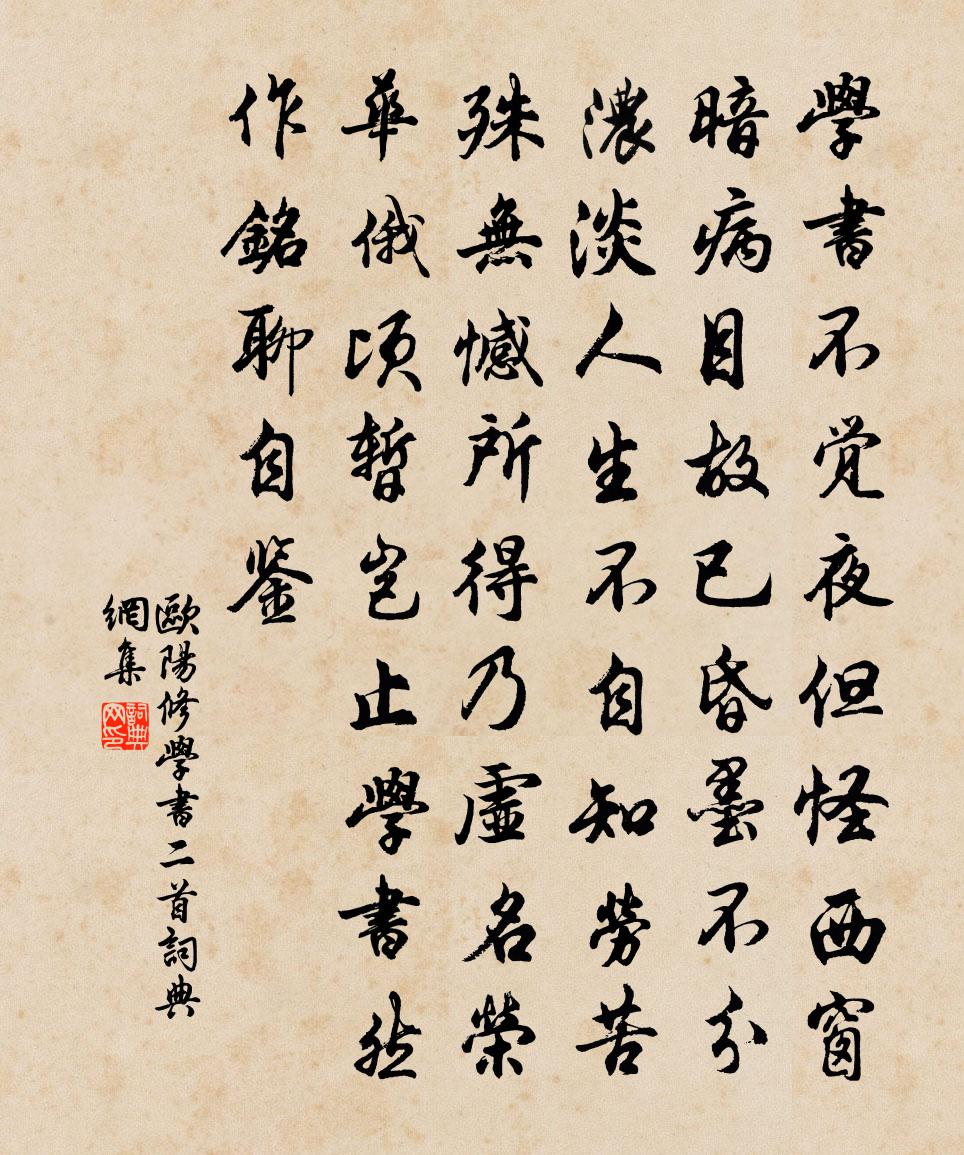 學書不觉夜但怪西窗
暗病目故已昏墨不分
濃淡人生不自知勞苦
殊無憾所得乃虛名榮
華俄頃暫岂止學書然
作銘聊自鉴
歐陽修學書二首詞典
網集
詞典
网印